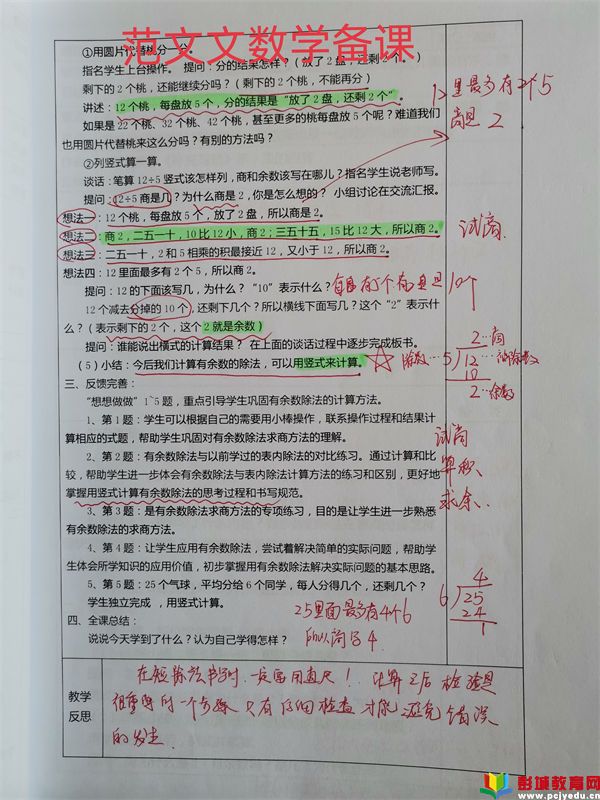 范文文数学备课
①用圆片代替桃分一分。
指名学生上台操作。 提问：分的结果怎样？（放了2盘，还剩2个。）
剩下的2个桃，还能继续分吗？（剩下的2个桃，不能再分）
讲述：12个桃，每盘放5个，分的结果是“放了2盘，还剩2个”。
如果是22个桃、32个桃、42个桃，甚至更多的桃每盘放5个呢？难道我们
也用圆片代替桃来这么分吗？有别的方法吗？
里最多有2个5
商是2
②列竖式算一算。
谈话：笔算12÷5竖式该怎样列，商和余数该写在哪儿？指名学生说老师写。
提问：12÷5商是几？为什么商是2，你是怎么想的？ 小组讨论在交流汇报。
想法一：12个桃，每盘放5个，放了2盘，所以商是2。
想法二：商2，二五一十，10比12小，商2；三五十五，15比12大，所以商2。
试商
想法三：二五一十，2和5相乘的积最接近12，又小于12，所以商2。
想法四：12里面最多有2个5，所以商2。
提问：12的下面该写几，为什么？“10”表示什么？
12个减去分掉的10个，还剩下几个？所以横线下面写几？这个“2”表示什
么？（表示剩下的2个，这个2就是余数）
提问：谁能说出横式的计算结果？ 在上面的谈话过程中逐步完成板书。
（5）小结：今后我们计算有余数的除法，可以用竖式来计算。
2…商
除数…5 12…被除数
10
2…余数
三、反馈完善：
“想想做做”1~5题，重点引导学生巩固有余数除法的计算方法。
1、第1题：学生可以根据自己的需要用小棒操作，联系操作过程和结果计
算相应的式题，帮助学生巩固对有余数除法求商方法的理解。
2、第2题：有余数除法与以前学过的表内除法的对比练习。通过计算和比
较，帮助学生进一步体会有余数除法与表内除法计算方法的练习和区别，更好地
掌握用竖式计算有余数除法的思考过程和书写规范。
试商
算积
求余
3、第3题：是有余数除法求商方法的专项练习，目的是让学生进一步熟悉
有余数除法的求商方法。
4、第4题：让学生应用有余数除法，尝试着解决简单的实际问题，帮助学
生体会所学知识的应用价值，初步掌握用有余数除法解决实际问题的基本思路。
5、第5题：25个气球，平均分给6个同学，每人分得几个，还剩几个？
学生独立完成 ，用竖式计算。
25里面最多有4个6
所以商写4.
4
6 25
24
1
四、全课总结：
说说今天学到了什么？认为自己学得怎样？
教学
反思
在短除法书写时，一定要用直尺！计算之后检验是
很重要的一个步骤，只有仔细检查才能避免错误
的发生
彭城教育网
www.pcjyedu.cn